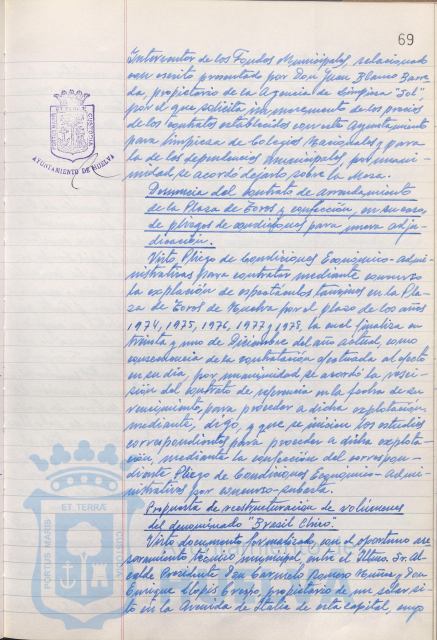 69
Interventor de los Fondos Municipales, relacionado
con escrito presentado por Don Juan Blanco Barre-
da, propietario de la Agencia de Limpieza "Sol",
por el que solicita incremento de los precios
de los contratos establecidos con este Ayuntamiento
para limpieza de Colegios Nacionales, y para
la de las dependencias Municipales, por unani-
midad, se acordó dejarlo sobre la Mesa.
Denuncia del contrato de arrendamiento
de la Plaza de Toros y confección, en su caso,
de pliegos de condiciones para nueva adju-
dicación.
Visto Pliego de Condiciones Económico-Admi-
nistrativas para contratar mediante concurso
la explotación de espectáculos taurinos en la Pla-
za de Toros de Huelva por el plazo de los años
1974, 1975, 1976, 1977 y 1978, la cual finaliza en
treinta y uno de Diciembre del año actual, como
consecuencia de la contratación efectuada al efecto
en su día, por unanimidad se acordó la resci-
sión del contrato de referencia en la fecha de su
vencimiento, para proceder a dicha explotación
mediante, digo, y que se inicien los estudios
correspondientes para proceder a dicha explota-
ción, mediante la confección del correspon-
diente Pliego de Condiciones Económico-Admi-
nistrativas por concurso-subasta.
Propuesta de reestructuración de volúmenes
del denominado "Brasil Chico".
Visto documento formalizado, con el oportuno ase-
soramiento técnico municipal entre el Iltmo. Sr. Al-
calde Presidente Don Carmelo Romero Núñez y Don
Enrique Llopis Crespo, propietario de un solar si-
to en la Avenida de Italia de esta capital, cuyo
AYUNTAMIENTO DE HUELVA
PORTUS MARIS
ET TERRÆ
CUSTODIA